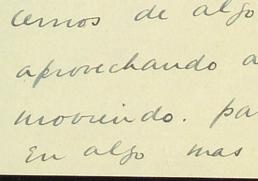 cemos de algo
aprovechando a
moviendo. pa
En algo mas